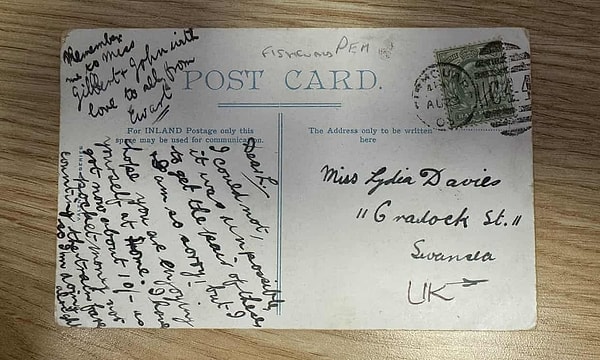 FISHGUARD PEM
POST CARD.
Remember
me to Miss
Gilbert & John with
love to all, from
Ewart
For INLAND Postage only this
space may be used for communication.
The Address only to be written
here
FISHGUARD
AU 23
Dear L.
I could not,
it was impossible
to get the pair of these
I am so sorry! but I
hope you are enjoying
yourself at home. I have
got now about 10/- as
pocket-money not
counting the train fare
so I'm doing alright
Miss Lydia Davies
11 Cradock St.
Swansea
UK